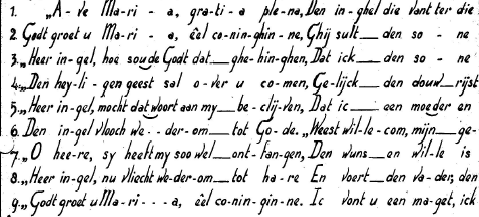 1. „A-ve Ma-ri - a, gra-ti-a ple-na, Den in-ghel die vant ter die
2. Godt groet u Ma-ri - a, eêl co-nin-ghin-ne, Ghij sult__ den so - ne
3. „Heer in-gel, hoe soude Godt dat__ ghe-hin-ghen, Dat ick__ den so - ne
4. „Den hey-li-gen geest sal o-ver u co-men, Ge-lijck__ den douw__ rijst
5. „Heer in-gel, mocht dat woort aan my__ be-clij-ven, Dat ic__ een moeder en
6. Den in-gel vlooch we--der-om__ tot Go-de. „Weest wil-le-com, mijn__ ge-
7. „O hee-re, sy heeft my soo wel__ ont-fan-gen, Den wuns__ en wil-le is
8. „Heer in-gel, nu vliecht we-der-om__ tot ha-re En voert__ den va-der, den
9. „Godt groet u Ma-ri---a, eêl co-nin-gin-ne. Ic vont u een ma-get, ick